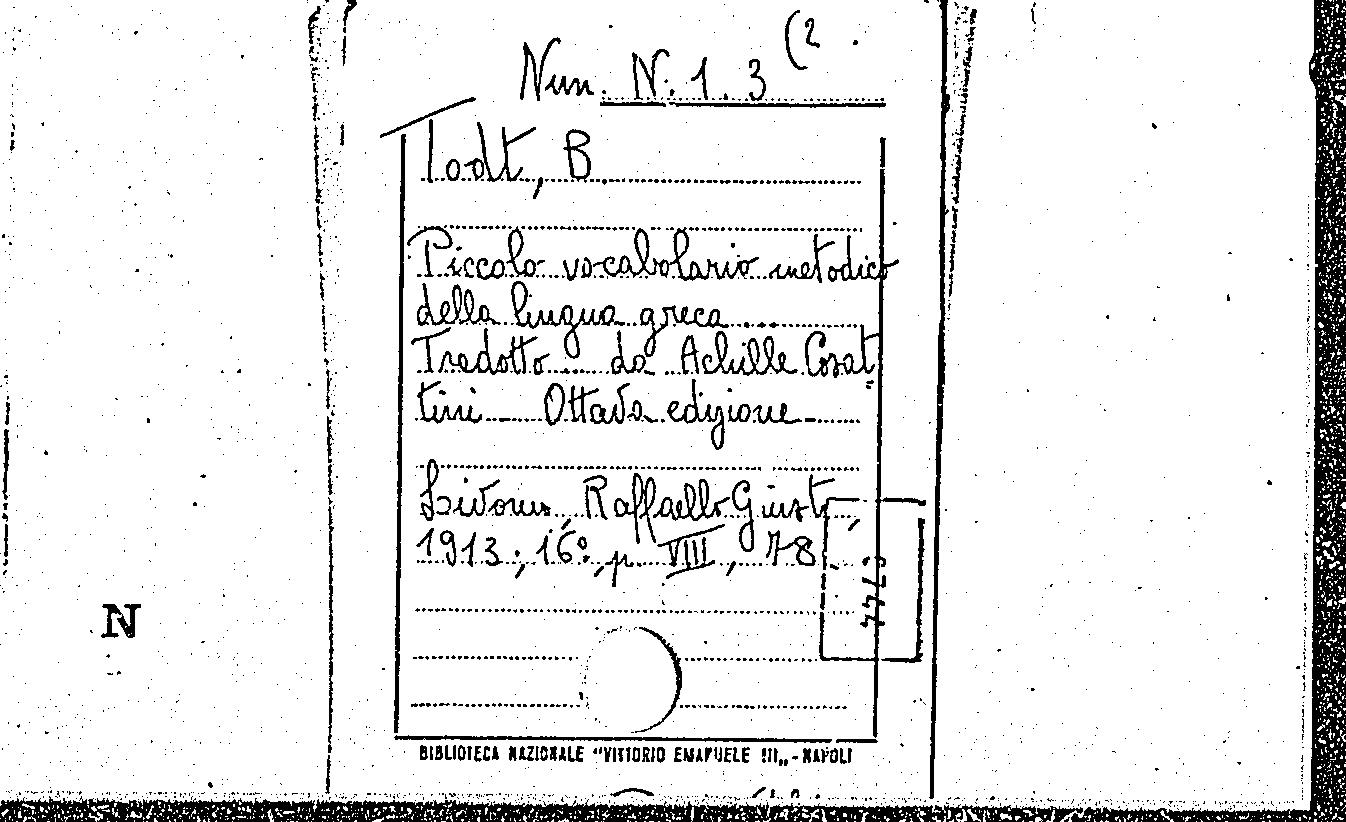 Nun. N. 1. 3 (2.
Todt, B.
Piccolo vocabolario metodico
della lingua greca ...
Tradotto ... da Achille Cosat
tini _ Ottava edizione _
Livorno, Raffaello Giusti,
1913; 16º, p. VIII, 78
N
BIBLIOTECA NAZIONALE "VITTORIO EMANUELE III„ - NAPOLI